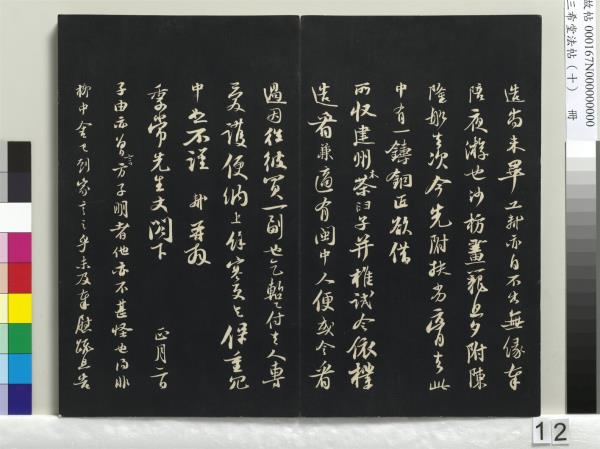 造尚未畢工耕亦自不出無緣奉
陪夜遊也沙枋畫籠旦夕附陳
隆船去次今先附扶劣膏去此
中有一鑄銅匠欲借
所收建州木茶臼子并椎試令依樣
造看兼適有閩中人便或令看
過因往彼買一副也乞暫付去人專
愛護便納上餘寒更乞保重冗
中恐不謹 軾再拜
季常先生丈閣下 正月二日
子由亦曾言方子明者他亦不甚怪也得非
柳中舍已到家言之乎未及奉慰疏且告
故帖 000167N000000000
三希堂法帖(十) 冊
12